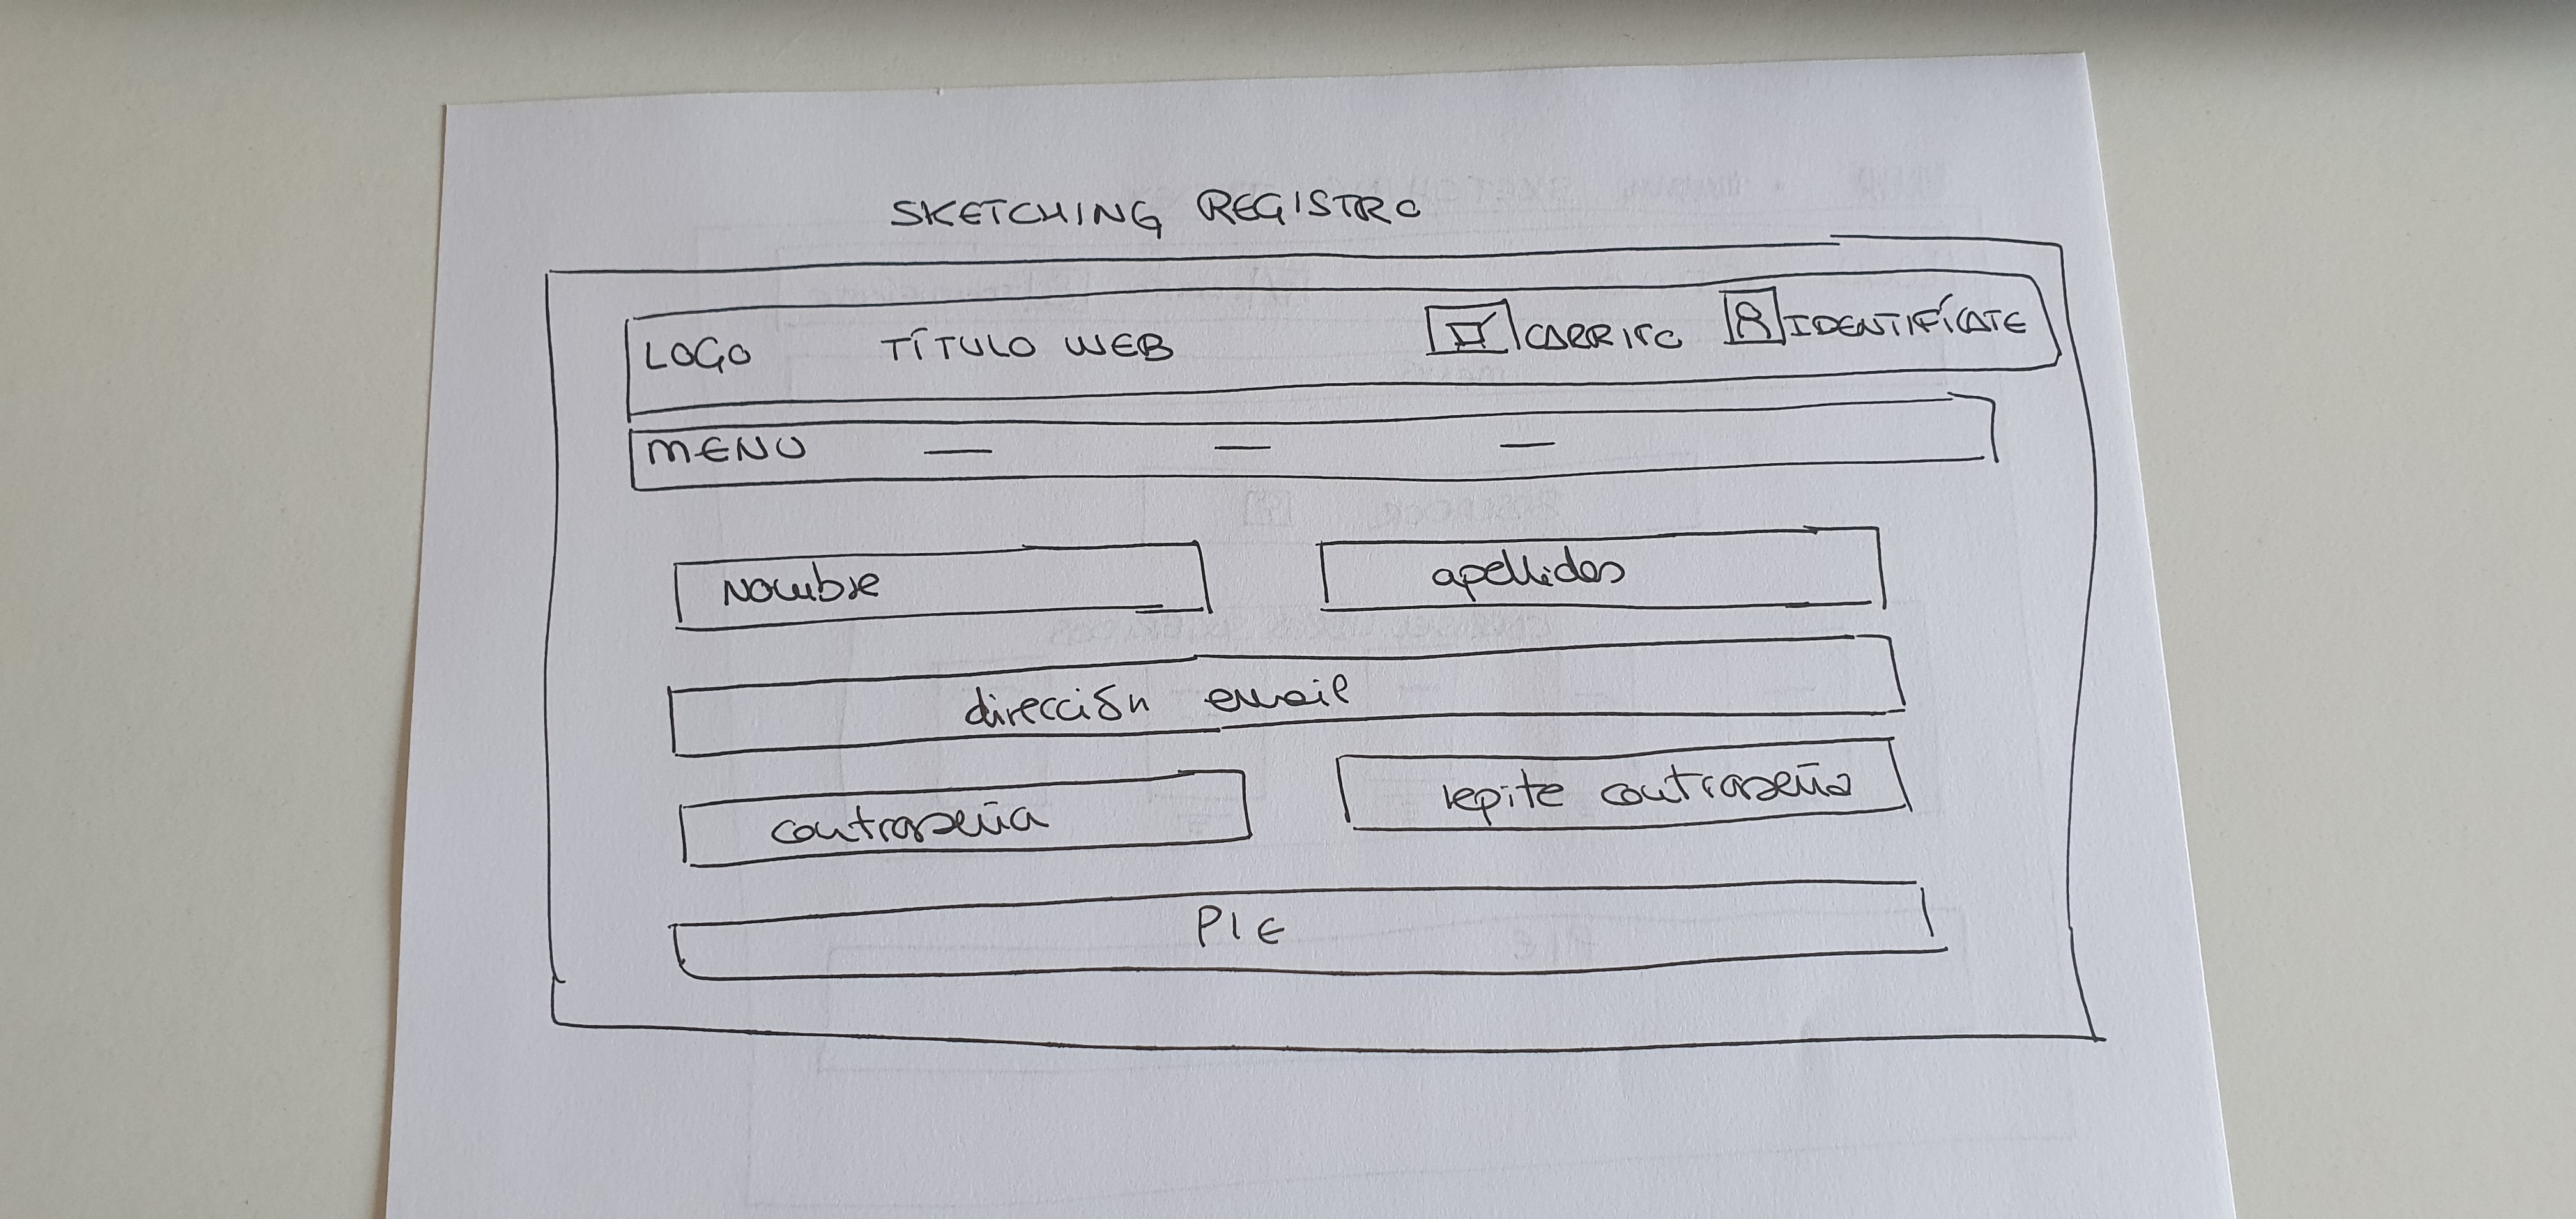 SKETCHING REGISTRO
LOGO TÍTULO WEB CARRITO IDENTIFÍCATE
MENU — — —
Nombre apellidos
dirección email
contraseña repite contraseña
PIE